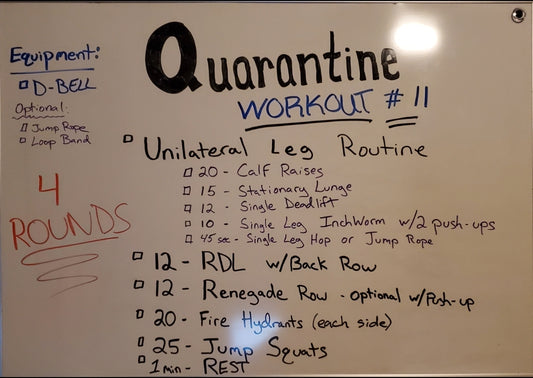 Quarantine
WORKOUT # 11
Equipment:
D-BELL
Optional:
Jump Rope
Loop Band
4
ROUNDS
Unilateral Leg Routine
20 - Calf Raises
15 - Stationary Lunge
12 - Single Deadlift
10 - Single Leg InchWorm w/2 push-ups
45 sec - Single Leg Hop or Jump Rope
12 - RDL w/Back Row
12 - Renegade Row - optional w/Push-up
20 - Fire Hydrants (each side)
25 - Jump Squats
1 min - REST